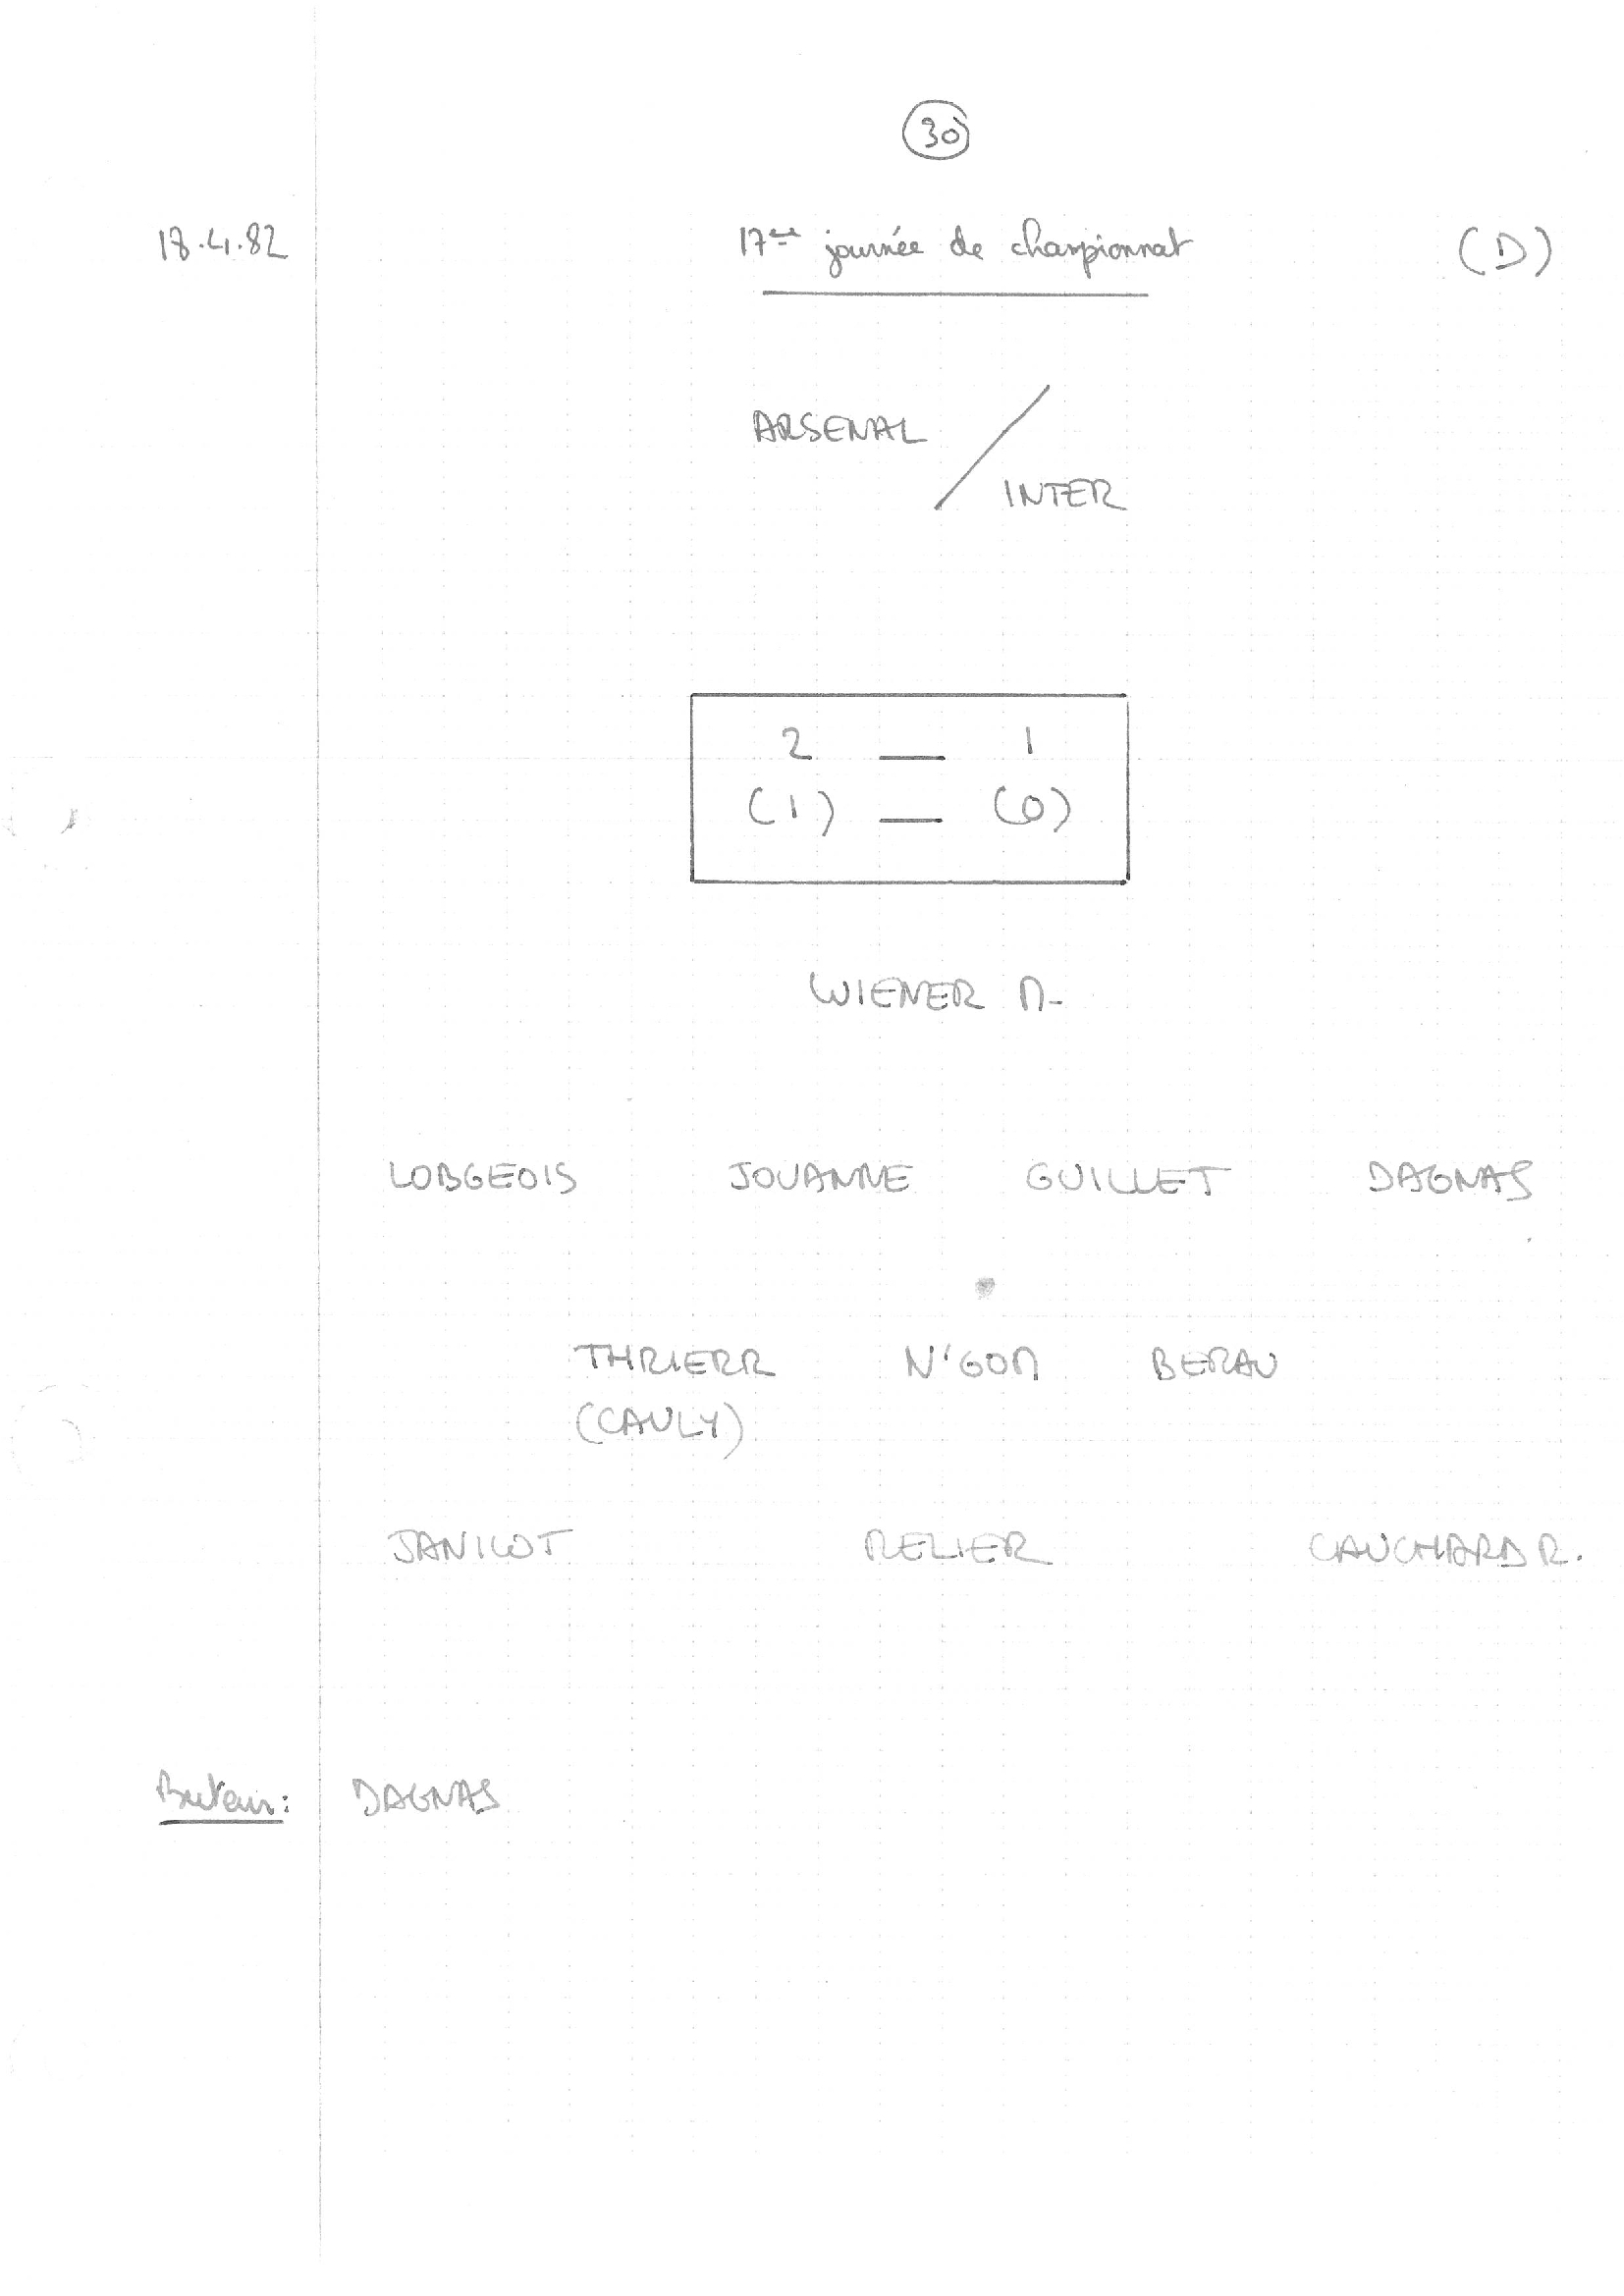 30
18.4.82 17ème journée de championnat (D)
ARSENAL / INTER
2 — 1
(1) — (0)
WIENER M.
LOBGEOIS JOUANNE GUILLET DAGNAS
THRIERR N'GOM BERAU
(CAULY)
JANICOT RELIER CAUCHARD R.
Buteur: DAGNAS